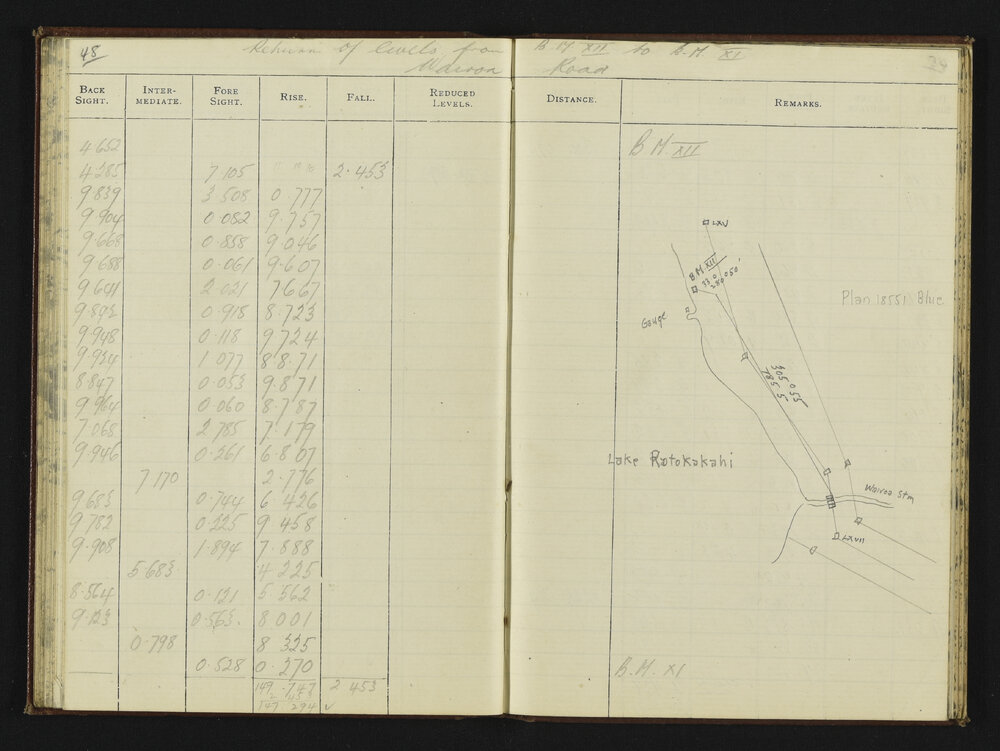 48
Return of levels from B.M. XII to B.M XI
Wairoa Road
BACK SIGHT. INTERMEDIATE. FORE SIGHT. RISE. FALL. REDUCED LEVELS. DISTANCE. REMARKS.
4 652 B.M. XII
4 285 7 105 2.453
9.839 3 508 0 777
9.904 0 082 9.757
9.668 0.858 9 046
9 688 0.061 9.607
9 641 2 021 7 667
9.893 0.918 8.723
9.948 0.118 9 724
9.934 1 077 8 8.71
8.847 0.053 9.871
9 964 0.060 8.787
7.068 2 785 7.179
9.946 0.261 6.807
7 170 2.776
9.683 0.744 6 426
9.782 0.225 9 458
9.908 1.894 7.888
5.683 4 225
8.564 0.121 5 562
9.123 0.563. 8 001
0.798 8 325
0.528 0.270 B.M. XI
149 747 2 453
2 453
147 294 ✓
LXV
B.M. XII
33 0
280°50'
Gauge
Plan 18551 Blue
305°55
785 5
Lake Rotokakahi
Wairoa Stm
LXVII